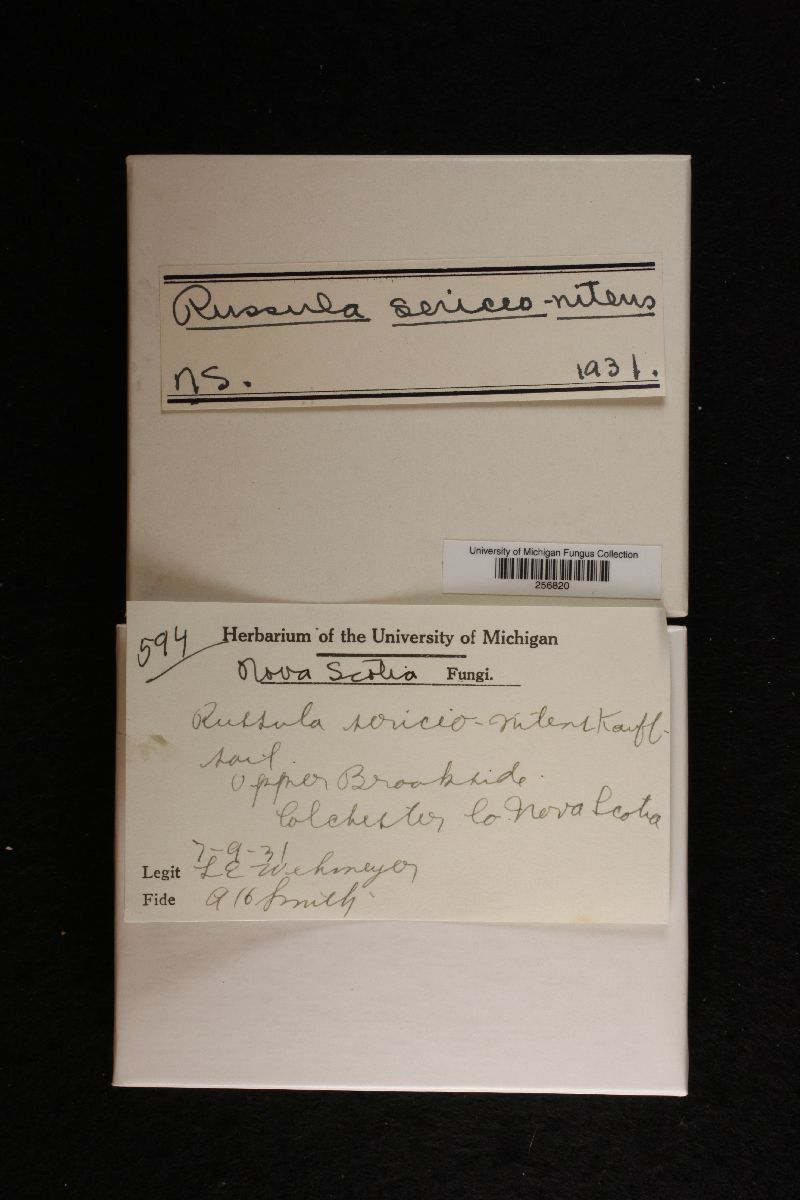 Russula sericeo-nitens
NS. 1931.
University of Michigan Fungus Collection
256820
594 Herbarium of the University of Michigan
Nova Scotia Fungi.
Russula sericio-nitens Kauff.
soil.
Upper Brookside.
Colchester Co. Nova Scotia
7-9-31
Legit L E Wehmeyer
Fide A H Smith